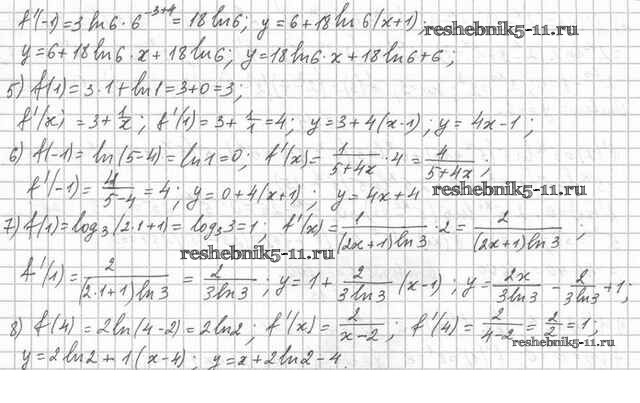 f'(-1)=3 ln6·6^{-3+4}=18 ln6; y=6+18 ln6(x+1);
reshebnik5-11.ru
y=6+18 ln6·x+18 ln6; y=18 ln6·x+18 ln6+6;
5) f(1)=3·1+ln1=3+0=3;
f'(x)=3+1/x; f'(1)=3+1/1=4; y=3+4(x-1); y=4x-1;
6) f(-1)=ln(5-4)=ln1=0; f'(x)=1/(5+4x)·4=4/(5+4x);
f'(-1)=4/(5-4)=4; y=0+4(x+1); y=4x+4
reshebnik5-11.ru
7) f(1)=log₃(2·1+1)=log₃3=1; f'(x)=1/((2x+1)ln3)·2=2/((2x+1)ln3);
reshebnik5-11.ru
f'(1)=2/((2·1+1)ln3)=2/(3ln3); y=1+2/(3ln3)(x-1); y=2x/(3ln3)-2/(3ln3)+1;
8) f(4)=2ln(4-2)=2ln2; f'(x)=2/(x-2); f'(4)=2/(4-2)=2/2=1;
reshebnik5-11.ru
y=2ln2+1(x-4); y=x+2ln2-4.